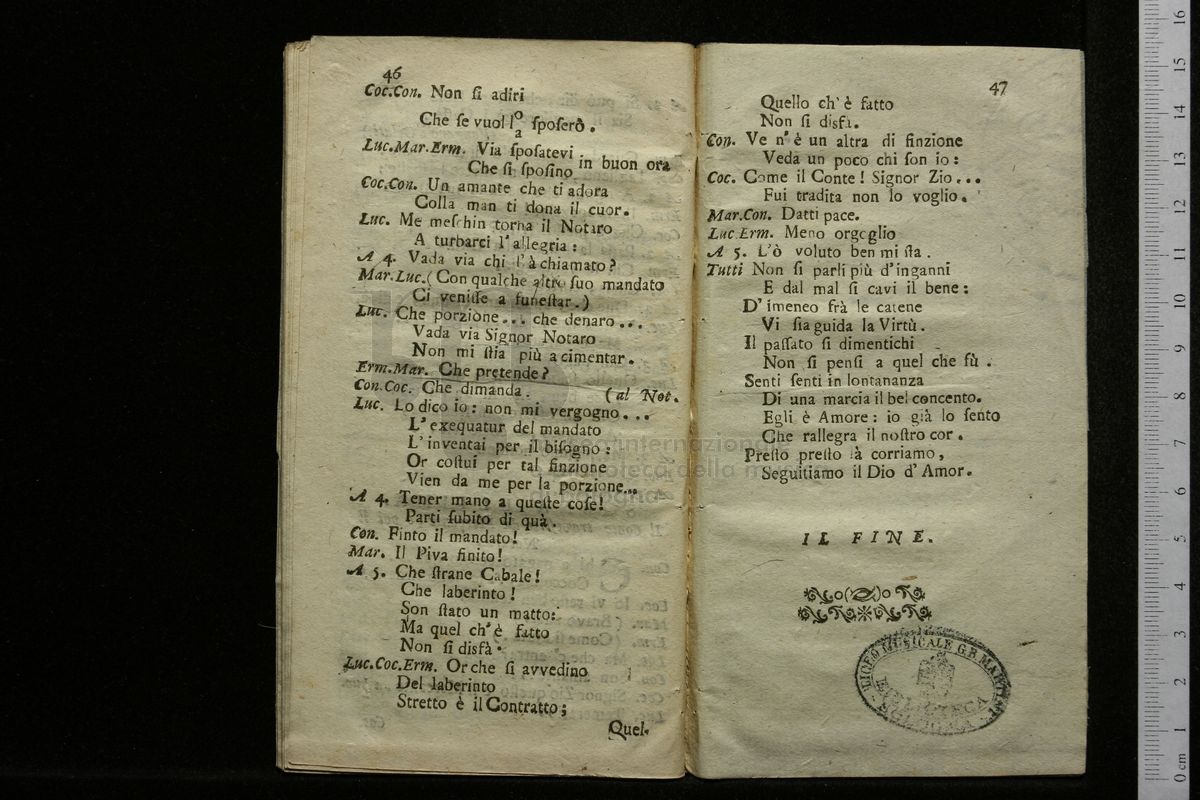 46
Coc.Con. Non ſi adiri
Che ſe vuol l o/a ſpoſerò.
Luc.Mar.Erm. Via ſpoſatevi
Che ſi ſpoſino in buon ora
Coc.Con. Un amante che ti adora
Colla man ti dona il cuor.
Luc. Me meſchin torna il Notaro
A turbarci l'allegria :
A 4. Vada via chi l'à chiamato?
Mar.Luc.(Con qualche altro ſuo mandato
Ci veniſſe a funeſtar.)
Luc. Che porzione... che denaro...
Vada via Signor Notaro
Non mi ſtia più a cimentar.
Erm.Mar. Che pretende?
Con.Coc. Che dimanda. (al Not.
Luc. Lo dico io: non mi vergogno...
L'exequatur del mandato
L'inventai per il biſogno :
Or coſtui per tal finzione
Vien da me per la porzione...
A 4. Tener mano a queſte coſe!
Parti ſubito di quà.
Con. Finto il mandato!
Mar. Il Piva finito!
A 5. Che ſtrane Cabale!
Che laberinto!
Son ſtato un matto:
Ma quel ch'è fatto
Non ſi disfà.
Luc.Coc.Erm. Or che ſi avvedino
Del laberinto
Stretto è il Contratto;
Quel-
47
Quello ch'è fatto
Non ſi disfà.
Con. Ve n'è un altra di finzione
Veda un poco chi ſon io:
Coc. Come il Conte! Signor Zio...
Fui tradita non lo voglio.
Mar.Con. Datti pace.
Luc Erm. Meno orgoglio
A 5. L'ò voluto ben mi ſta.
Tutti Non ſi parli più d'inganni
E dal mal ſi cavi il bene:
D'imeneo frà le catene
Vi ſia guida la Virtù.
Il paſſato ſi dimentichi
Non ſi penſi a quel che fù.
Senti ſenti in lontananza
Di una marcia il bel concento.
Egli è Amore: io già lo ſento
Che rallegra il noſtro cor.
Preſto preſto là corriamo,
Seguitiamo il Dio d'Amor.
IL FINE.
LICEO MUSICALE G.B. MARTINI
BIBLIOTECA
BOLOGNA
museo internazionale
biblioteca della musica
bologna
0 cm 1 2 3 4 5 6 7 8 9 10 11 12 13 14 15 16